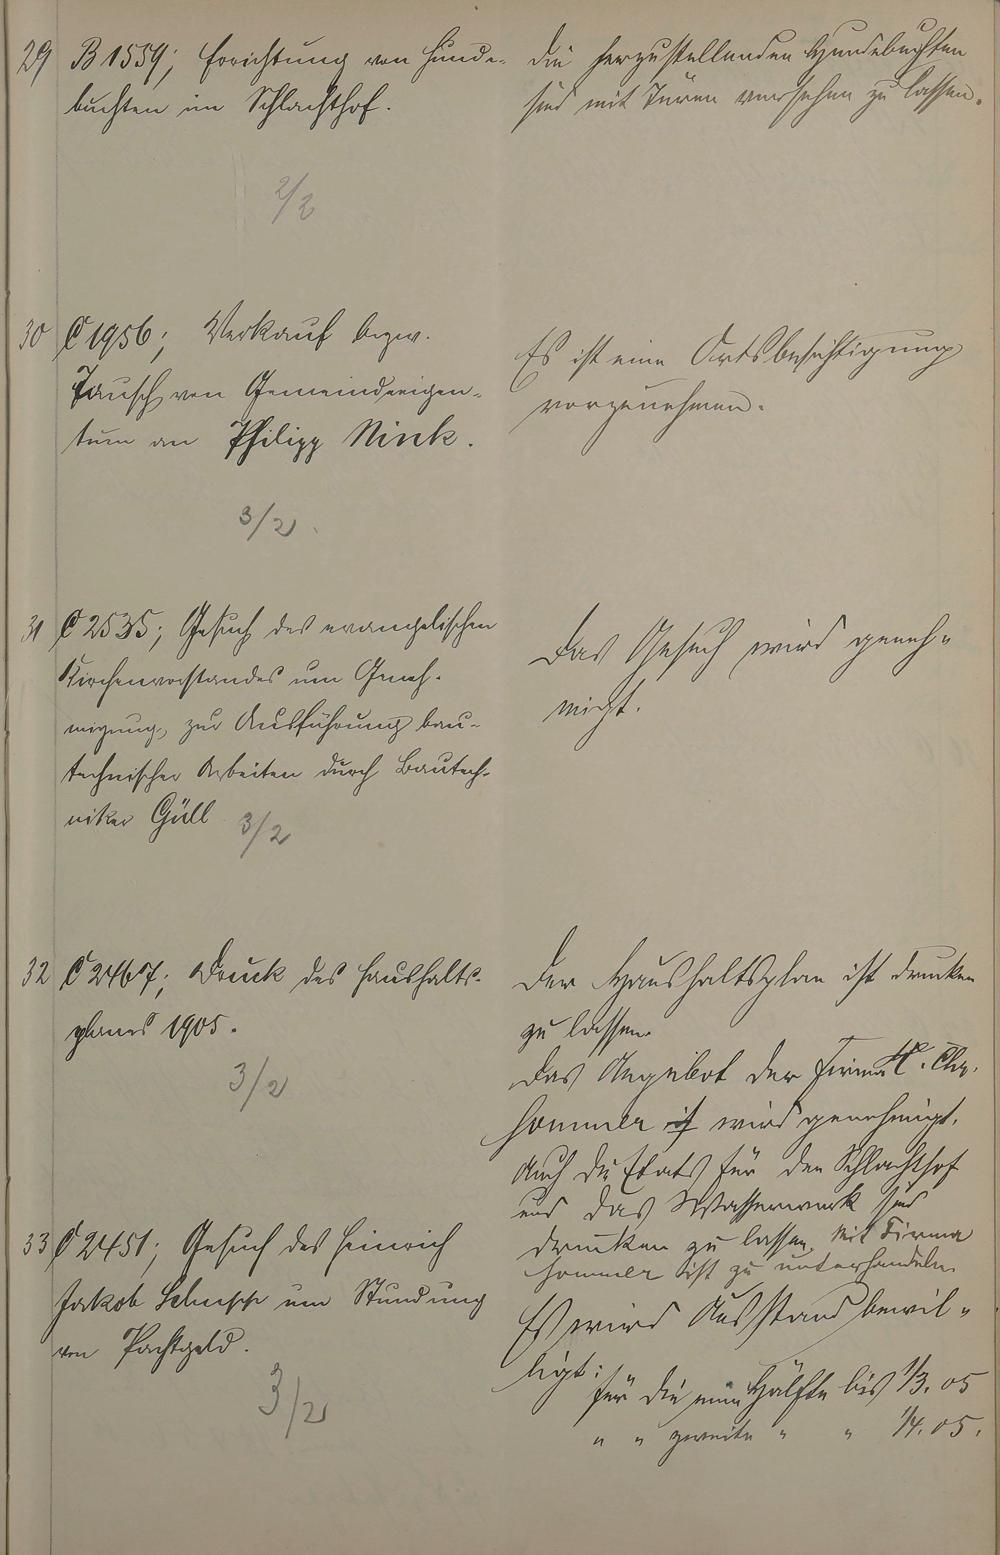 29 B 1559; Errichtung von Hunde-
buchten im Schlachthof.
Die herzustellenden Hundebuchten
sind mit Türen versehen zu lassen.
2/2
30 C 1956; Verkauf bezw.
Tausch von Gemeindeeigen-
tum an Philipp Nink.
Es ist eine Ortsbesichtigung
vorzunehmen.
3/2
31 C 2535; Gesuch des evangelischen
Kirchenvorstandes um Geneh-
migung, zur Ausführung bau-
technischer Arbeiten durch Bautech-
niker Güll
Das Gesuch wird geneh-
migt.
3/2
32 C 2467; Druck des Haushalts-
planes 1905.
Der Haushaltsplan ist drucken
zu lassen.
Das Angebot der Firma Chr.
Sommer ist wird genehmigt.
Auch die Etats für den Schlachthof
und das Wasserwerk sind
drucken zu lassen. Mit Firma
Sommer ist zu unterhandeln.
3/2
33 C 2451; Gesuch des Heinrich
Jakob um Stundung
von Pachtgeld.
Es wird Ausstand bewil-
ligt:
für die eine Hälfte bis 1/3. 05
" " zweite " " 1/4. 05.
3/2